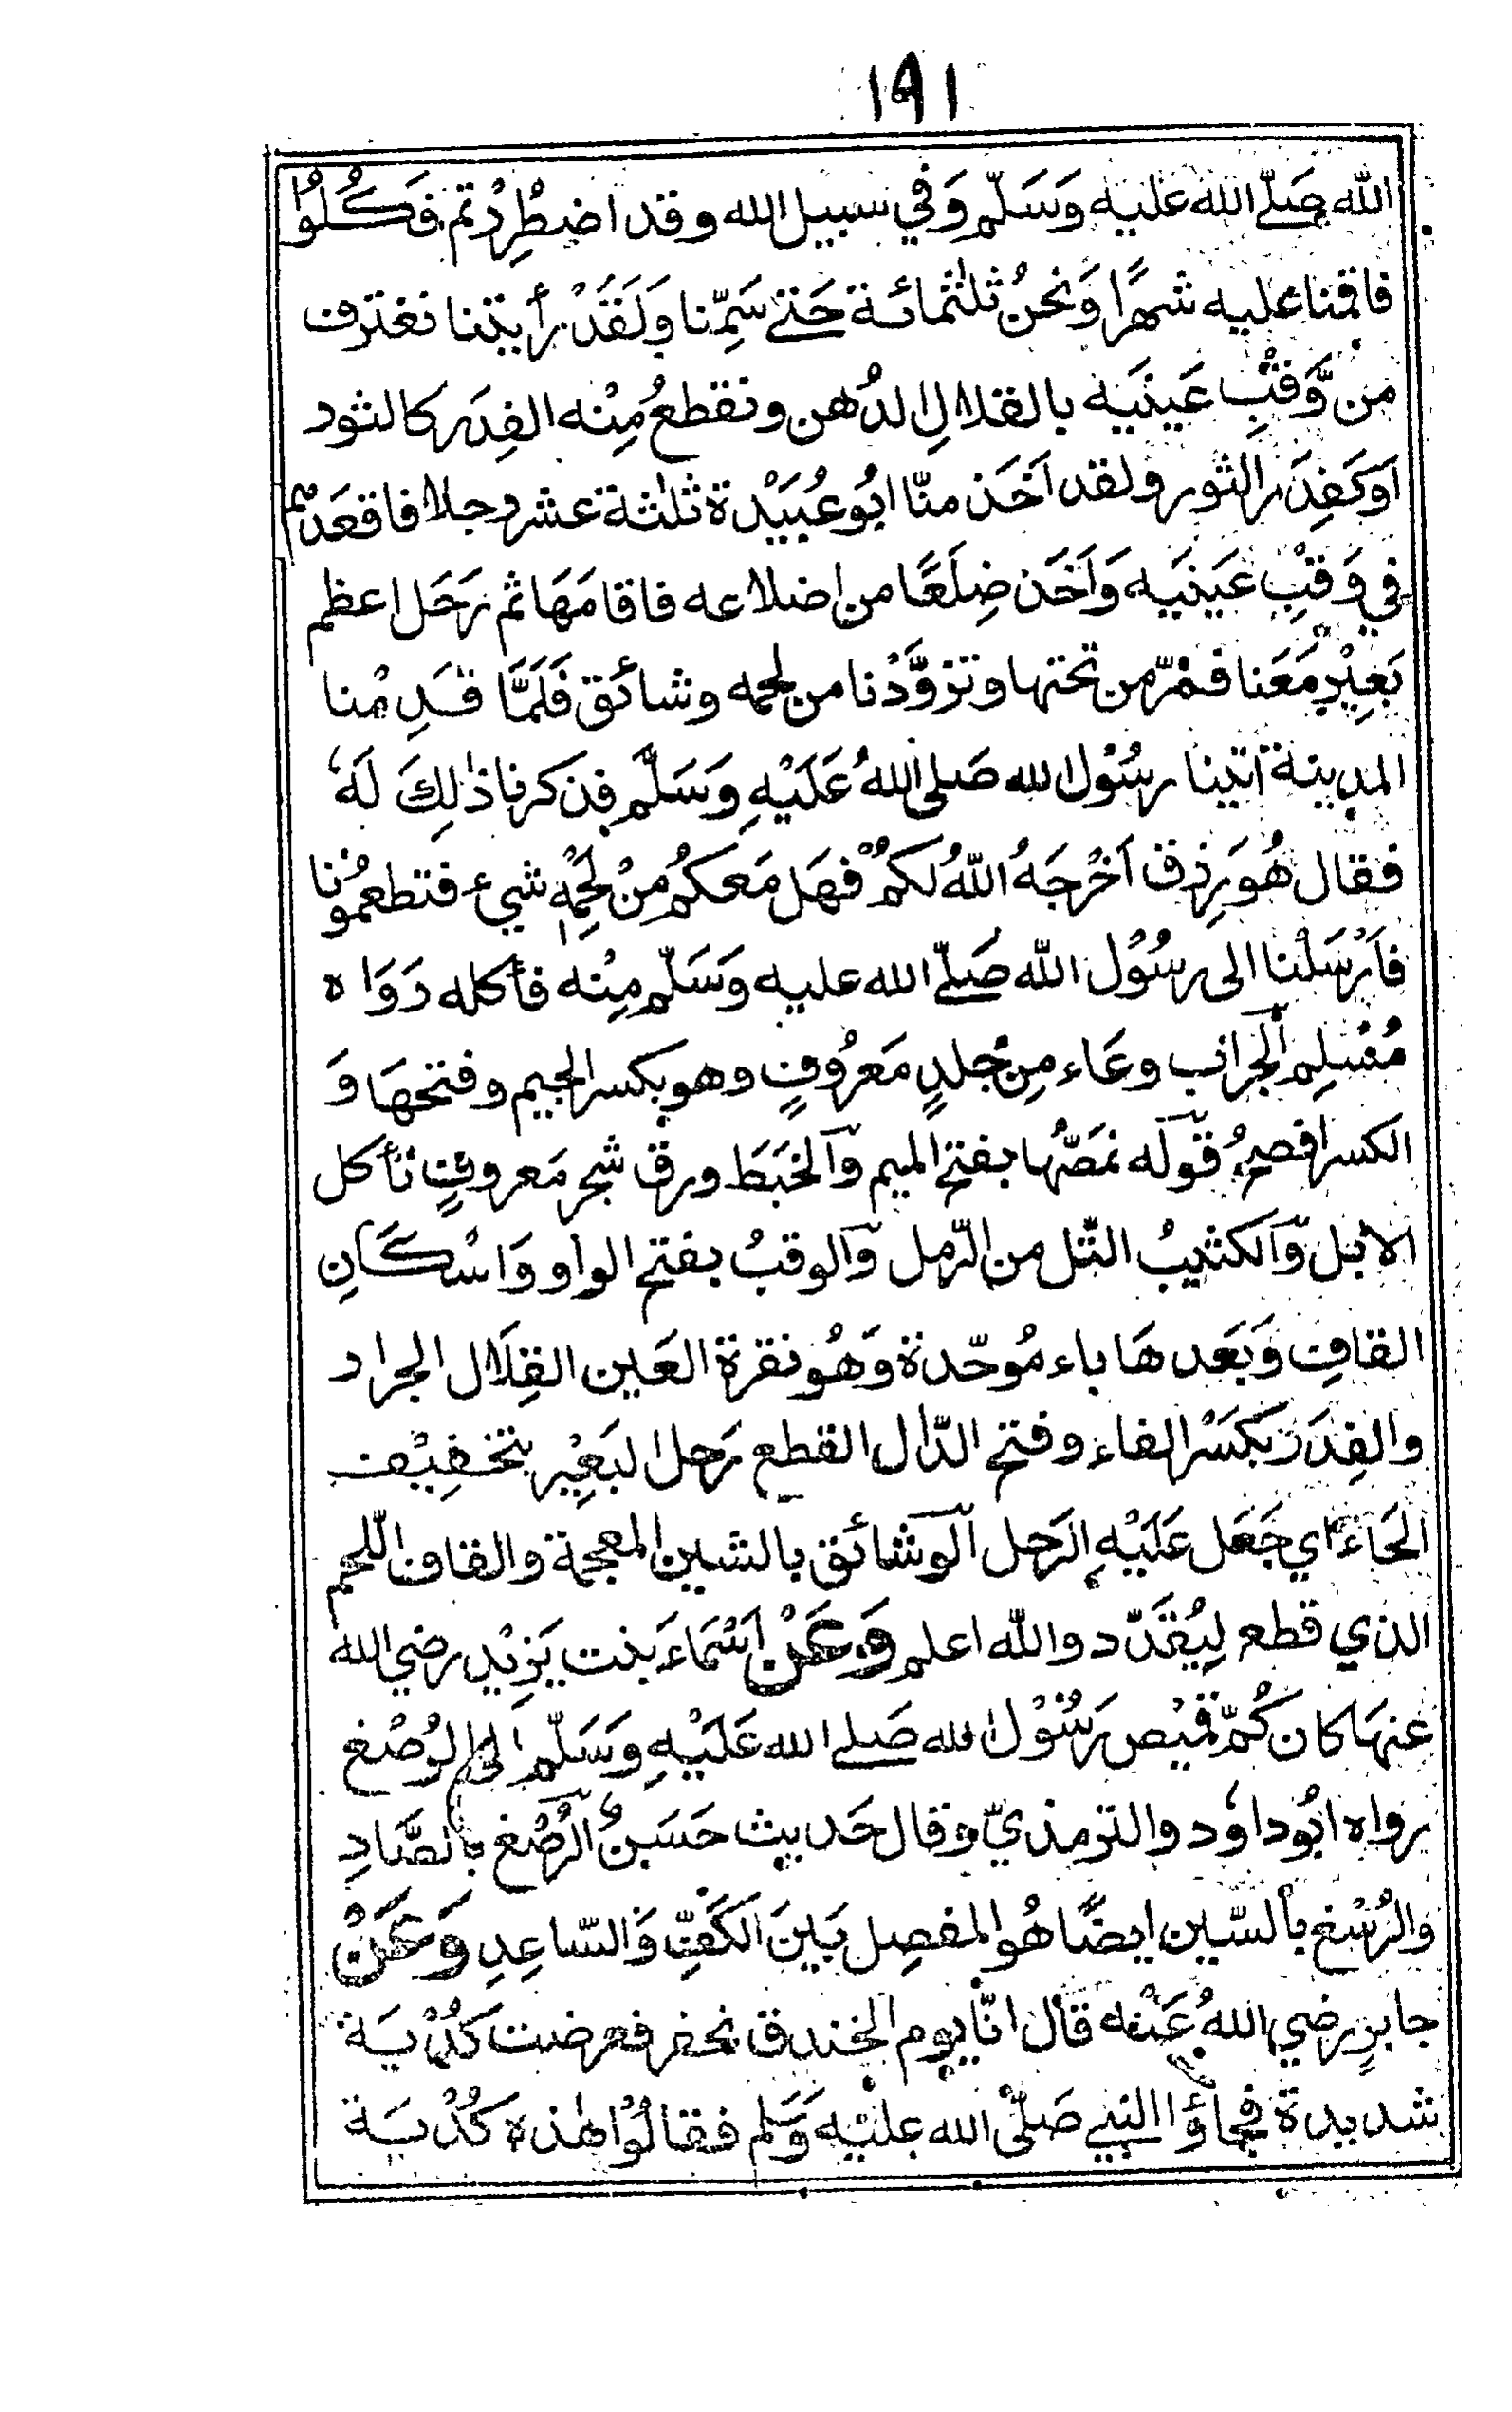 ١٩١
الله صَلّے الله عليه وَسَلّم وَفي سبيل الله وقد اضطُرِرْتم فَكُلُوْا
فاقمنا عليه شهرًا وَنحنُ ثلٰثمائة حَتے سَمِنّا وَلَقَدْ رأيتنا نغترف
من وَّقْبِ عَينَيه بالقلالِ الدُهن ونقطعُ مِنْه الفِدَر كالثور
اَوكَقِدَر الثور ولقد اَخَذ منّا ابُو عُبَيْدة ثلٰثة عشر رجلا فاقعَدَهُم
في وَقْبِ عَينَيه وَاَخَذ ضِلَعًا من اضلاعه فاقامَهَا ثم رَحَل اعظم
بَعِيْرٍ مَعَنا فمَرّ من تحتها وتزوَّدْنا من لحمه وشائق فَلَمَّا قَدِمْنا
المدينة اتينا رسُوْل الله صَلى اللهُ عَلَيْهِ وَسَلَّم فذكرنا ذٰلِكَ لَهٗ
فقال هُوَ رِزق اَخْرجَهُ اللّٰهُ لكُمْ فهَل مَعكُم مِنْ لَحْمِهٖ شيء فتطعمُوْنا
فَاَرْسَلْنا الى رسُوْل اللّٰه صَلّے الله عليه وَسَلّم مِنْه فأكله رَوَاه
مُسْلِم اَلجراب وعَاء مِنْ جلدٍ مَعرُوفٍ وهو بكسر الجيم وفتحهَا وَ
الكسر افصحُ قوله نمَصُّها بفتح الميم وَالخَبَطَ ورق شجر مَعروفٍ تأكل
الابل وَالكثيبُ التّل من الرّمل وَالوقبُ بفتح الواو وَاسْكَانِ
القافِ وَبَعَدهَا باء مُوحّدة وَهُو نقرة العَين القِلَال الجرار
والفِدَر بكَسْر الفاء وفتح الدّال القطع رَحل البَعِيْر بتخفِيْف
الحَاء اي جَعَل عَلَيْهِ الرَحل اَلوشائق بالشين المعجمة والقاف اللّحم
الذي قطع لِيُقَدّد والله اعلم وَعَنْ اَسْمَاءَ بنت يَزِيْد رضي الله
عنهَا كان كُمّ قميْص رَسُوْل الله صَلے الله عَلَيْهِ وَسَلَّم الى الرُصْغ
رواه ابُوداوٗد والترمذيّ وقال حَديث حَسَنٌ اَلرُصْغ بالصَّادِ
والرُسْغ بالسّين ايضًا هُو المفصِل بَينَ الكَفِّ وَالسّاعِدِ وَعَنْ
جابرٍ رضي اللهُ عَنْه قال انّا يوم الخندق نحفر فعرضت كُدْيَة
شديدة فجاؤا النبي صَلّى الله عليْه وَسَلم فقالُوْا هٰذه كُدْيَة